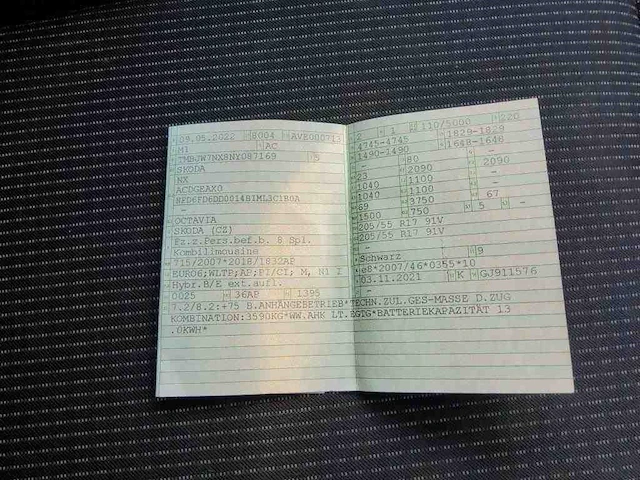 09.05.2022 8004 AVE000713
M1 AC
TMBJW7NX8NY087169 5
SKODA
NX
ACDGEAX0
-
OCTAVIA
SKODA (CZ)
Fz.z.Pers.bef.b. 8 Spl.
Kombilimousine
715/2007*2018/1832AP
EURO6;WLTP;AP;PI/CI; M, N1 I
Hybr.B/E ext.aufl.
0025 36AP 1395
7.2/8.2:+75 B.ANHÄNGEBETRIEB*TECHN.ZUL.GES-MASSE D.ZUG
KOMBINATION:3590KG*WW.AHK LT.EGTG*BATTERIEKAPAZITÄT 13
.0KWH*
2 1 110/5000 220
4745-4745 1829-1829
1490-1490 1648-1648
80
23 2090 2090
1040 1100 -
1040 1100 -
69 3750 67
1500 750 5 -
205/55 R17 91V
205/55 R17 91V
-
Schwarz 9
e8*2007/46*0355*10
03.11.2021 K GJ911576